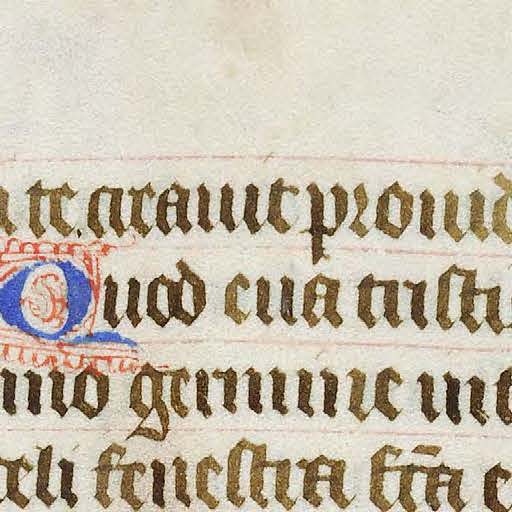 te. creauit prouid
Quod eua tristi
mo germine int
celi fenestra fc̄a e